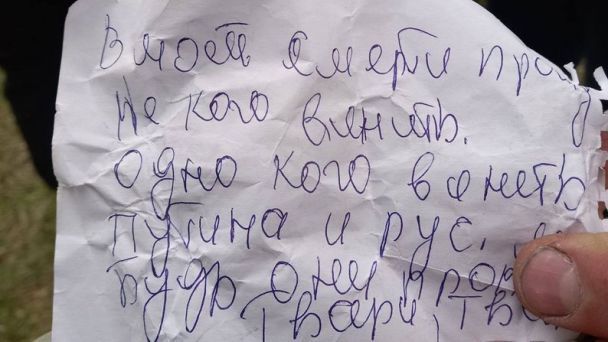 В моей смерти
не кого винить.
одно кого винить
путина и рус.
Будь они
Твари,